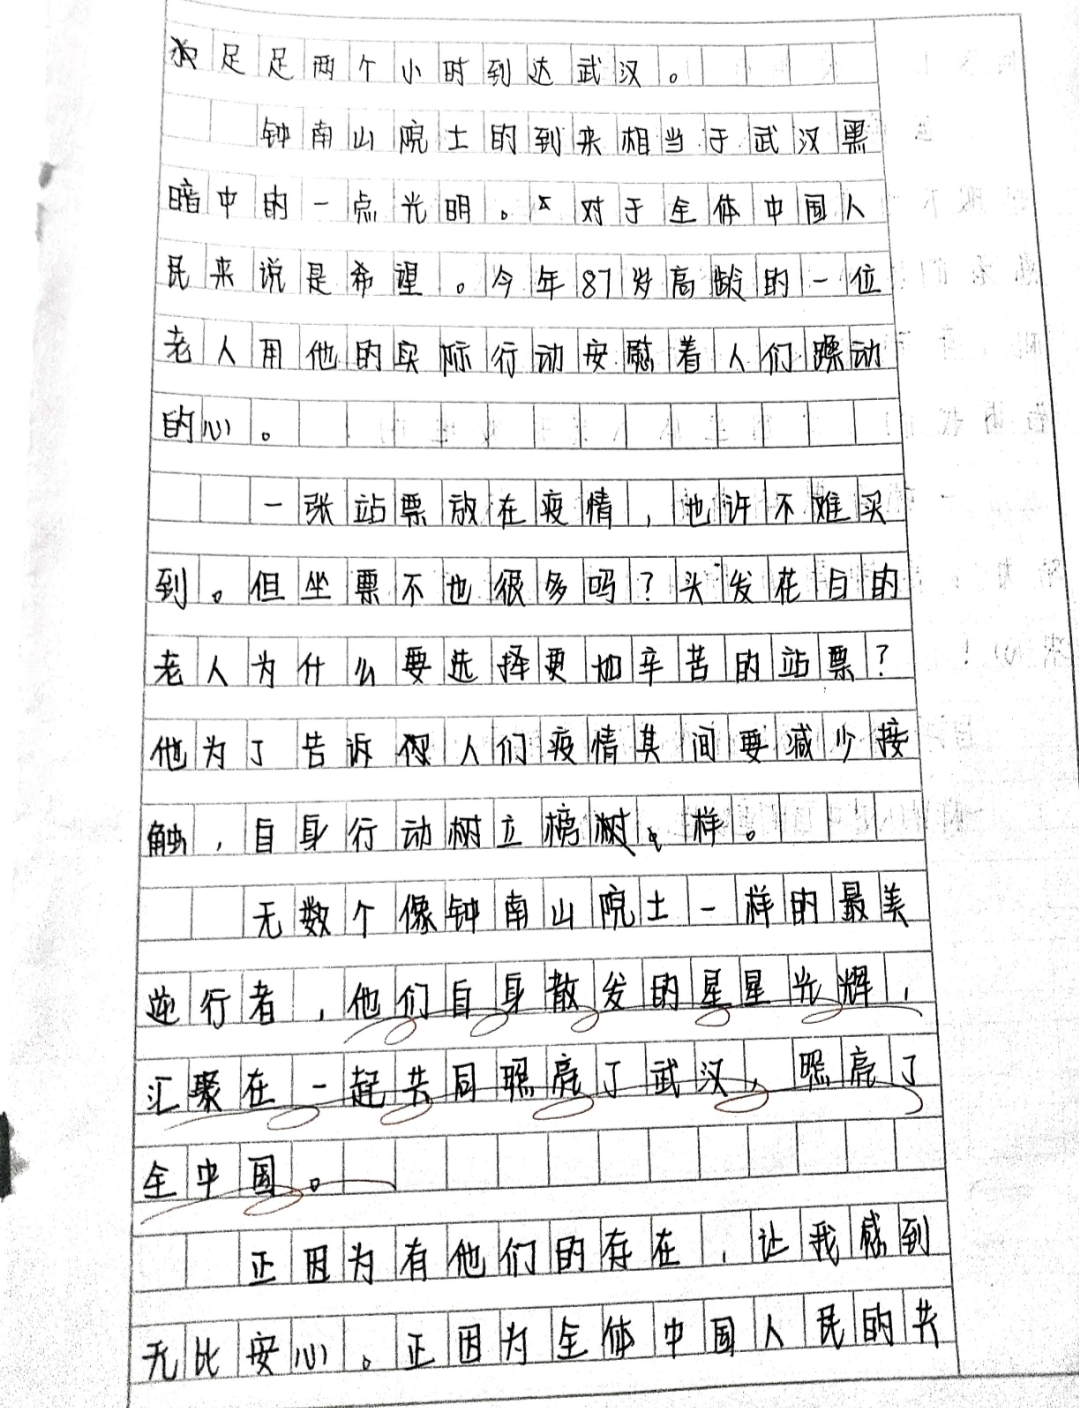 足足两个小时到达武汉。
钟南山院士的到来相当于武汉黑
暗中的一点光明。对于全体中国人
民来说是希望。今年87岁高龄的一位
老人用他的实际行动安慰着人们躁动
的心。
一张站票放在疫情，也许不难买
到。但坐票不也很多吗？头发花白的
老人为什么要选择更加辛苦的站票？
他为了告诉人们疫情其间要减少接
触，自身行动树立榜样。
无数个像钟南山院士一样的最美
逆行者，他们自身散发的星星光辉，
汇聚在一起共同照亮了武汉，照亮了
全中国。
正因为有他们的存在，让我感到
无比安心。正因为全体中国人民的共